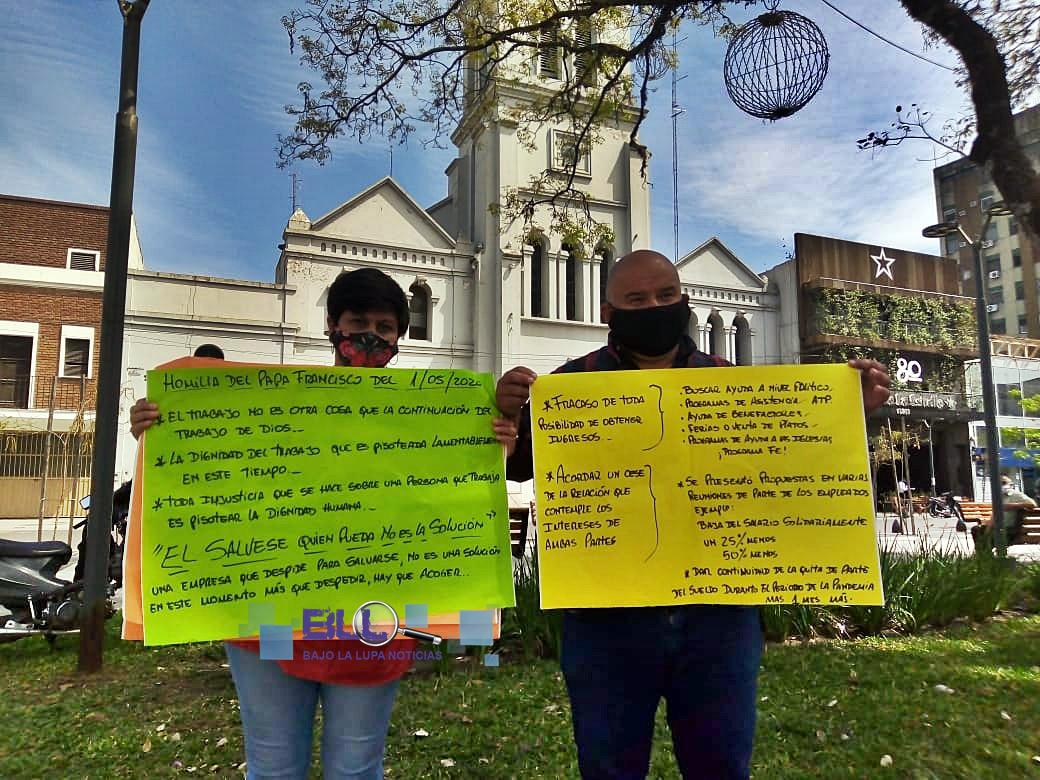 HOMILIA DEL PAPA FRANCISCO DEL 1/05/2020
* EL TRABAJO NO ES OTRA COSA QUE LA CONTINUACIÓN DEL
TRABAJO DE DIOS..
* LA DIGNIDAD DEL TRABAJO QUE ES PISOTEADA LAMENTABLEMENTE
EN ESTE TIEMPO..
* TODA INJUSTICIA QUE SE HACE SOBRE UNA PERSONA QUE TRABAJA
ES PISOTEAR LA DIGNIDAD HUMANA..
"EL SALVESE QUIEN PUEDA NO ES LA SOLUCIÓN"
UNA EMPRESA QUE DESPIDE PARA SALVARSE, NO ES UNA SOLUCIÓN
EN ESTE MOMENTO MÁS QUE DESPEDIR, HAY QUE ACOGER...
BLL
BAJO LA LUPA NOTICIAS
* FRACASO DE TODA
POSIBILIDAD DE OBTENER
INGRESOS...
* ACORDAR UN CESE
DE LA RELACIÓN QUE
CONTEMPLE LOS
INTERESES DE
AMBAS PARTES
. BUSCAR AYUDA A NIVEL POLÍTICO.
. PROGRAMAS DE ASISTENCIA - ATP.
. AYUDA DE BENEFACTORES.
. FERIAS O VENTA DE PLATOS.
. PROGRAMAS DE AYUDA A LAS IGLESIAS
¡PROGRAMA FE!
* SE PRESENTÓ PROPUESTAS EN VARIAS
REUNIONES DE PARTE DE LOS EMPLEADOS
EJEMPLO:
BAJA DEL SALARIO SOLIDARIAMENTE
UN 25% MENOS
50% MENOS
* DAR CONTINUIDAD DE LA QUITA DE PARTE
DEL SUELDO DURANTE EL PERIODO DE LA PANDEMIA
MAS 1 MES MÁS.
80